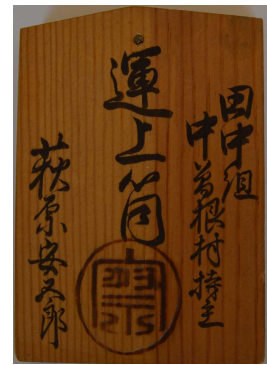 田中組
中曽根村持主
運上筒
萩原安又郎